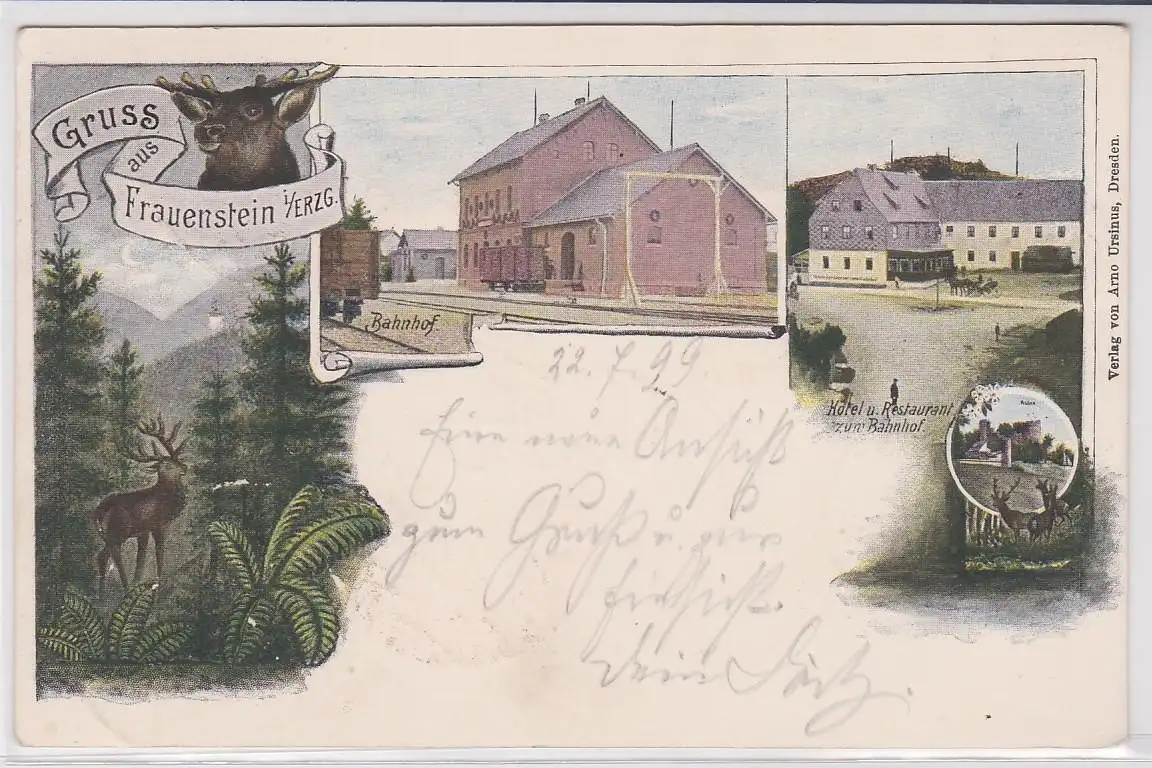 Gruss
aus
Frauenstein i/ERZG.
Bahnhof.
Hotel u. Restaurant
zum Bahnhof.
Ruine
Verlag von Arno Ursinus, Dresden.
22. 7. 99.
Eine neue Ansicht
zum Gruß u. zur
Dein